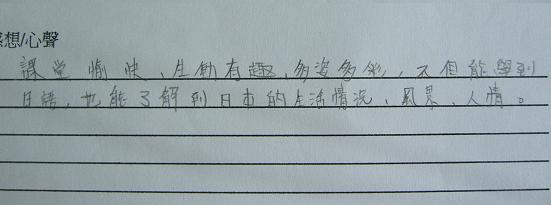 感想/心聲
課堂愉快、生動有趣、多姿多彩，不但能學到
日語，也能了解到日本的生活情況、風景、人情。